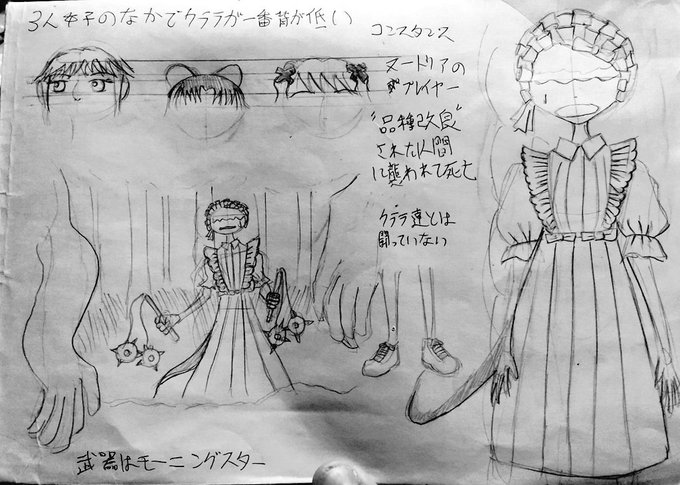 3人女子のなかでクララが一番背が低い
コンスタンス
ヌードリアの
プレイヤー
"品種改良"
された人間
に襲われて死亡
クララ達とは
闘っていない
武器はモーニングスター